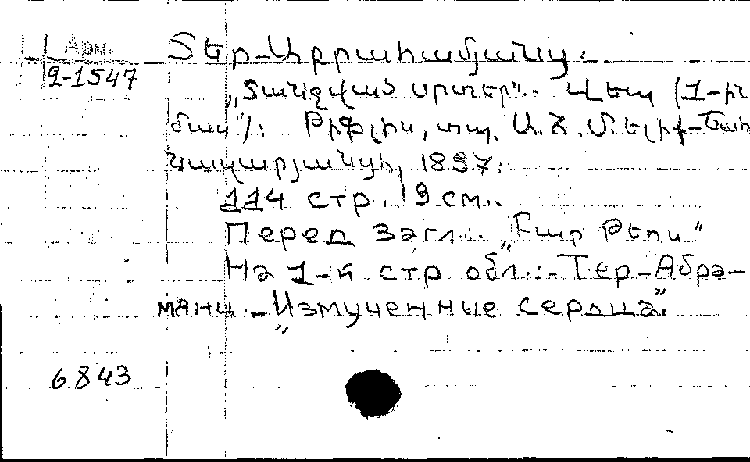 Арм.
9-1547
Տեր-Աբրահամյանց.
„Տանջված սրտեր". Վեպ (1-ին
մաս): Թիֆլիս, տպ. Ա.Ճ. Մելիք-Շահ
նազարյանցի, 1897.
114 стр. 19 см.
Перед загл.: „Բար Թեոս"
На 1-й стр обл.: Тер-Абра-
мянц - „Измученные сердца".
6843